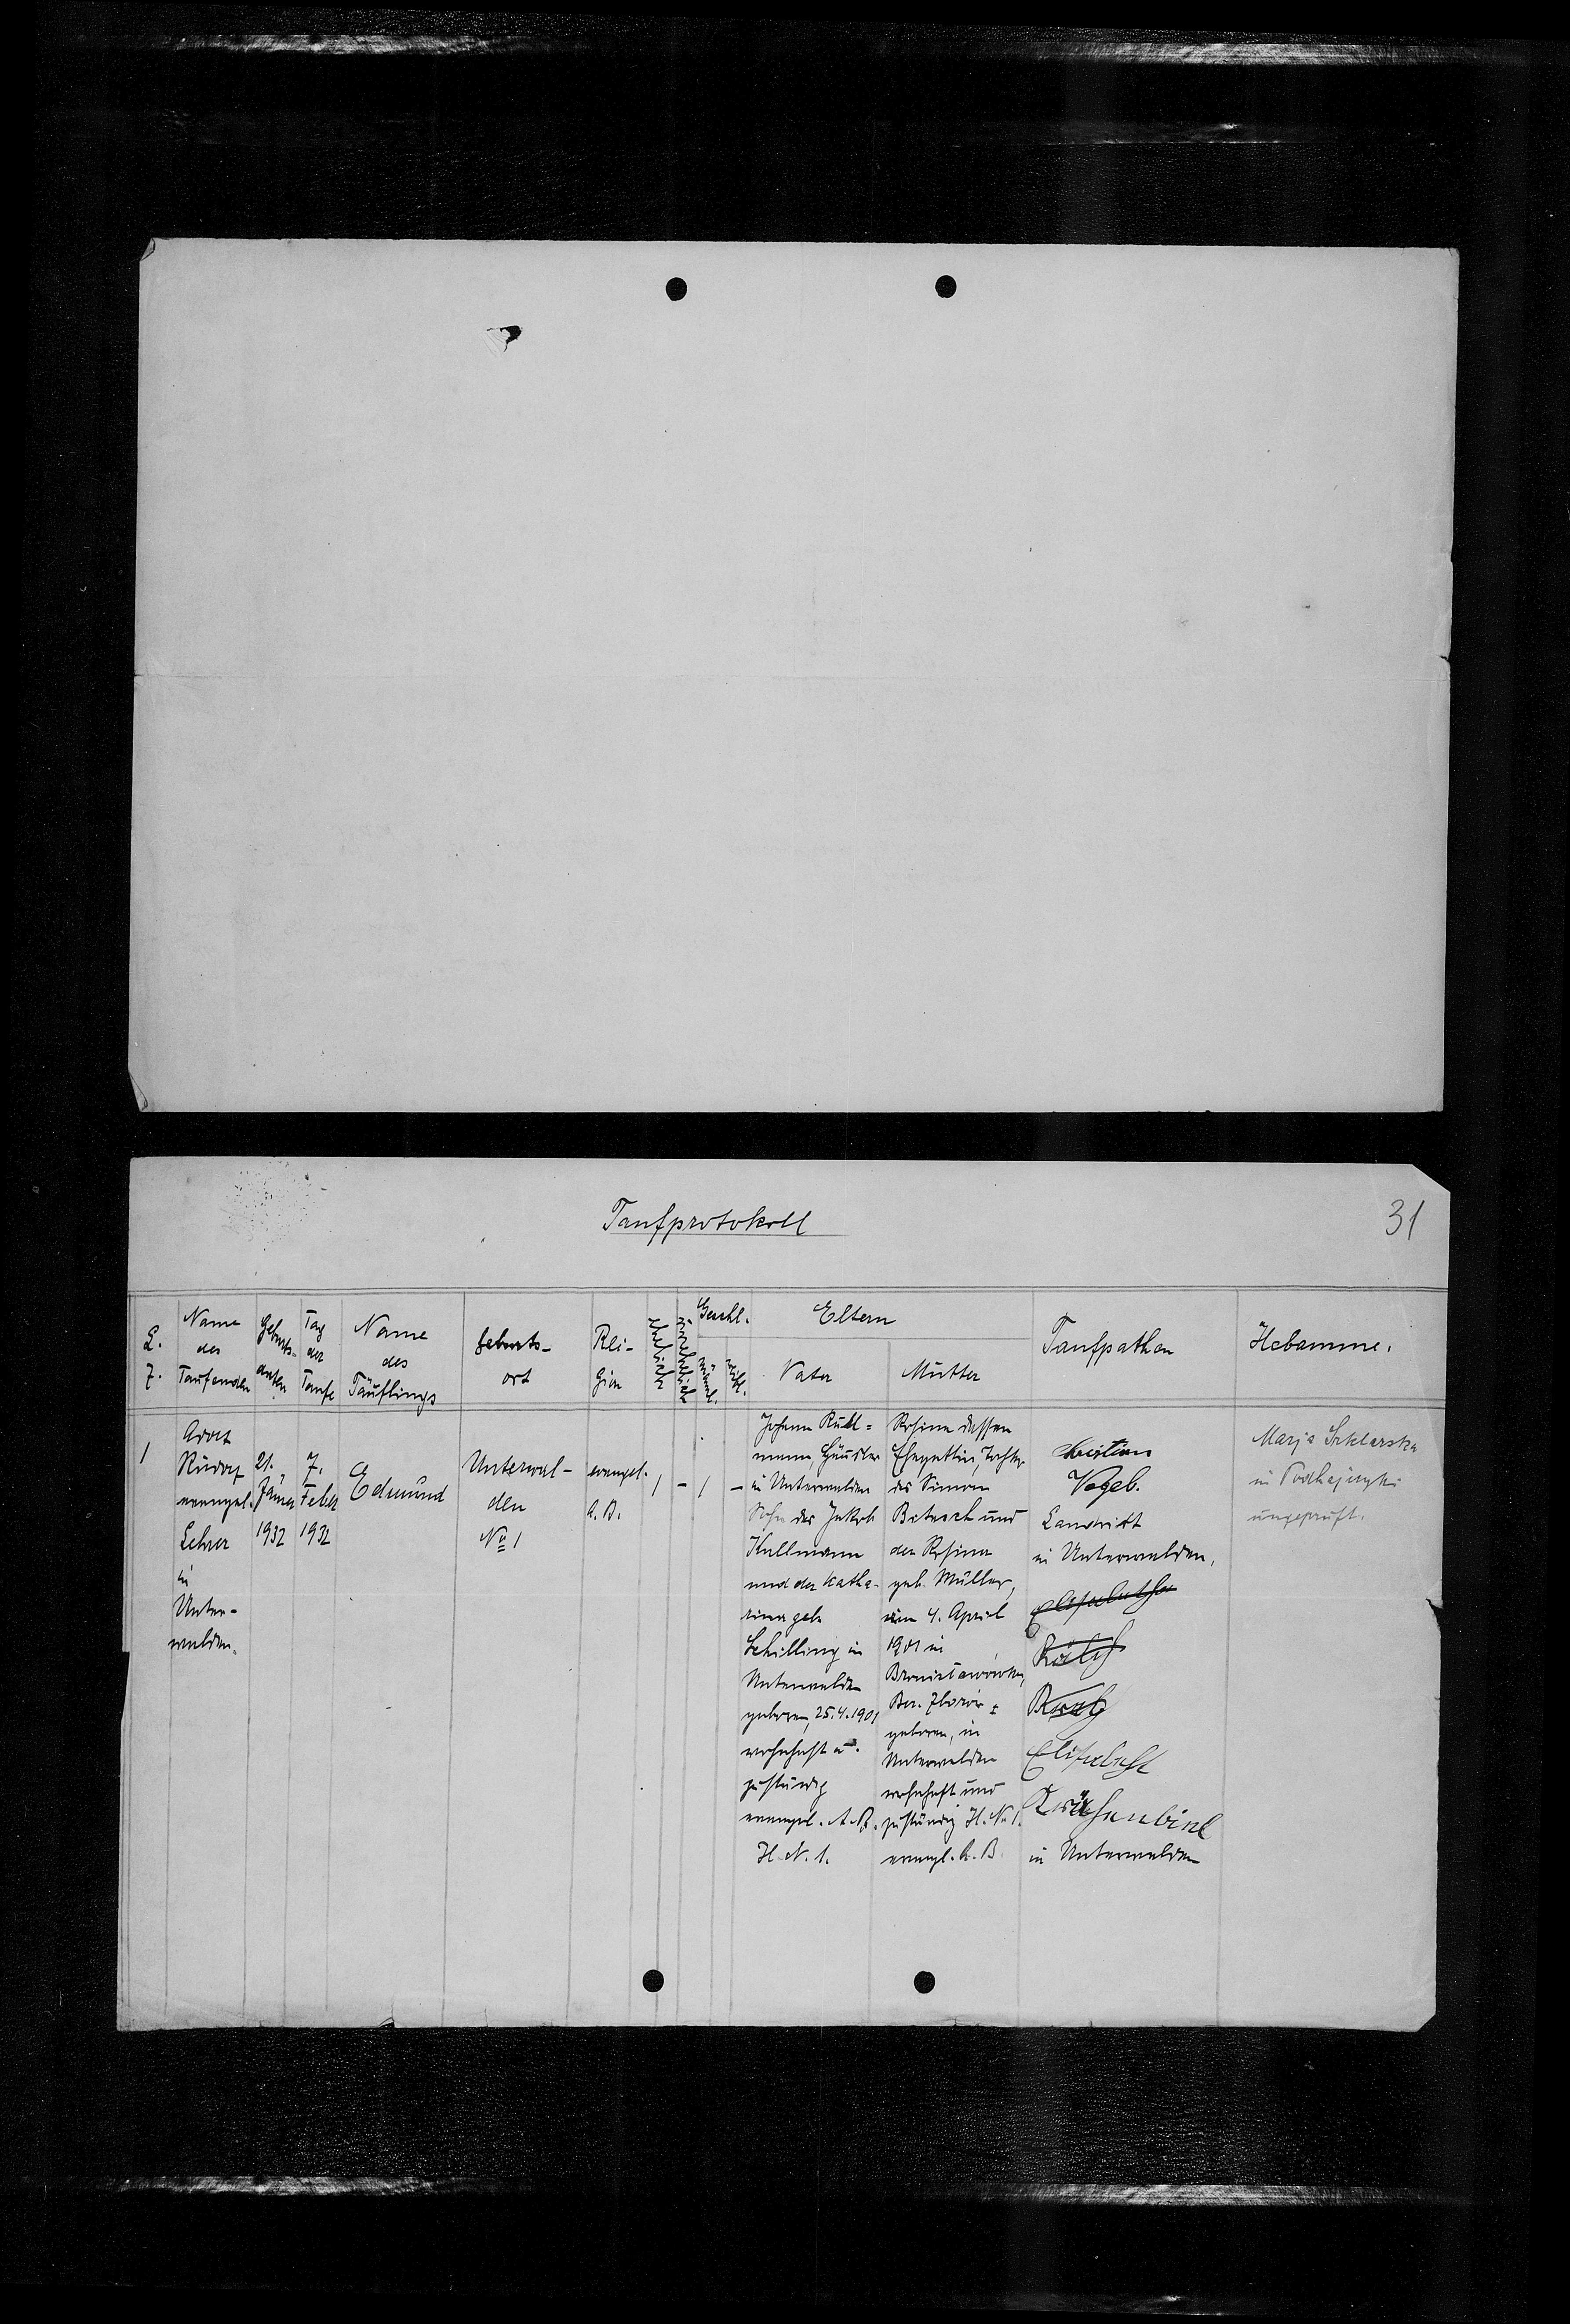 Taufprotokoll
31
L. Z.
Name des Taufenden
Geburts- daten
Tag der Taufe
Name des Täuflings
Geburts- ort
Reli- gion
ehelich
unehelich
Geschl.
männl.
weibl.
Eltern
Vater
Mutter
Taufpathen
Hebamme.
1
Adolf
Rudolf
evangel.
Lehrer
in
Unter-
walden.
21.
Jänner
1932
7.
Feber
1932
Edmund
Unterwal-
den
No 1
evangel.
A. B.
1
-
1
-
Johann Kull=
mann, Häusler
in Unterwalden
Sohn des Jakob
Kullmann
und der Katha-
rina geb.
Schilling in
Unterwalden
geboren, 25.4.1901
wohnhaft u.
zuständig
evangel. A. B.
H. N. 1.
Rosina dessen
Ehegattin, Tochter
des Simon
und
der Rosina
geb. Müller,
am 4. April
1901 in
Bez. Zborów
geboren, in
Unterwalden
wohnhaft und
zuständig H. N. 1.
evangl. A. B.
Christian
Vogel.
Landwirt
in Unterwalden,
Elisabetha
Elisabeth
Krähenbiel
in Unterwalden
Marja Szklarska
in Podhajczyki
ungeprüft.